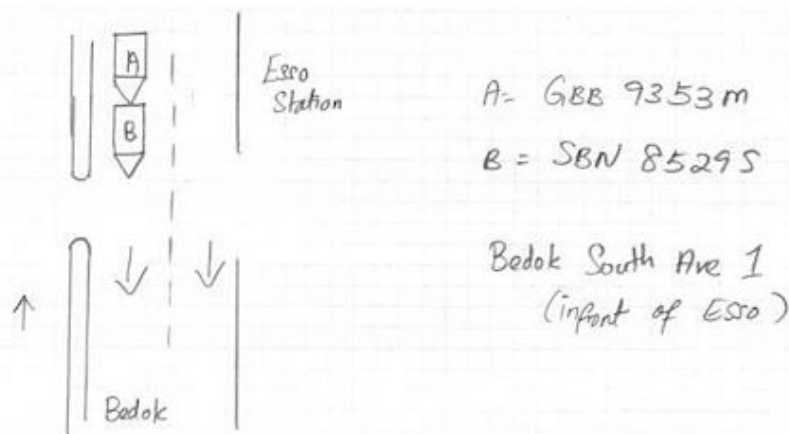 A
B
Esso
Station
A- GBB 9353m
B = SBN 8529S
Bedok South Ave 1
(infront of Esso)
Bedok